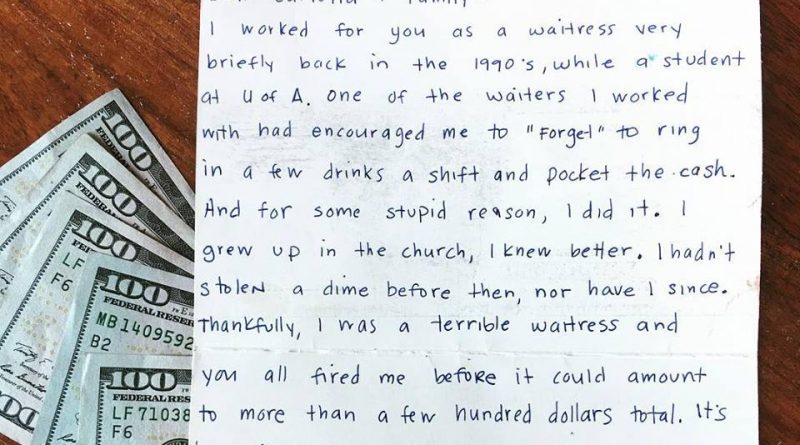 I worked for you as a waitress very
briefly back in the 1990's, while a student
at U of A. One of the waiters I worked
with had encouraged me to "Forget" to ring
in a few drinks a shift and pocket the cash.
And for some stupid reason, I did it. I
grew up in the church, I knew better. I hadn't
stolen a dime before then, nor have I since.
Thankfully, I was a terrible waitress and
you all fired me before it could amount
to more than a few hundred dollars total. It's
100
FEDERAL
100
FEDERAL
100
LF
F6
100
FEDERAL RESER
MB1409592
B2
100
LF71038
F6